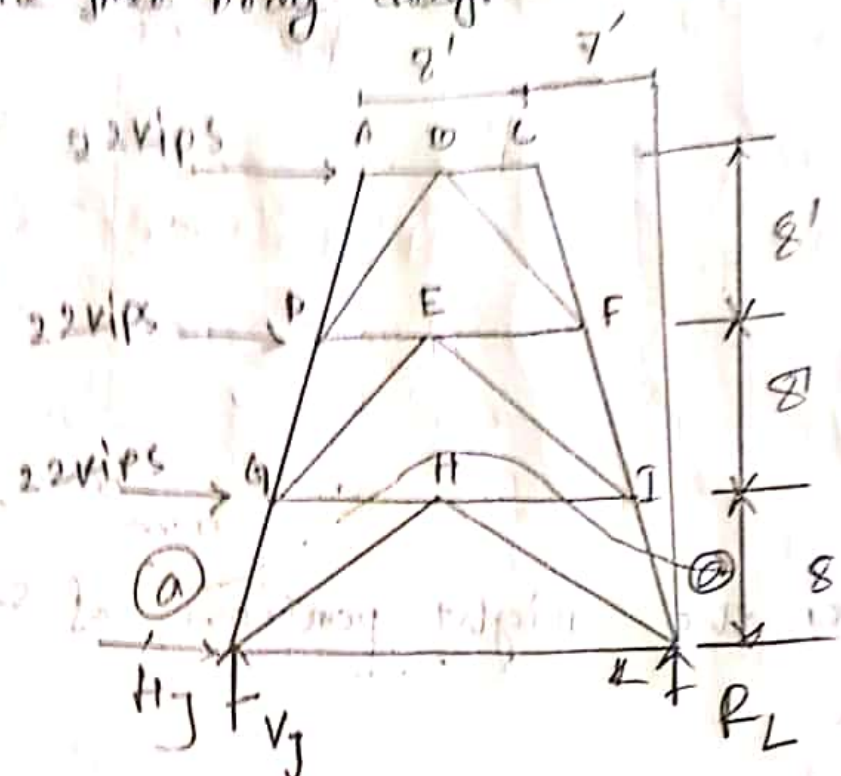 8' 7'
22vips
A B C
8'
22vips
D E F
8'
22vips
G H I
a a
8
HJ VJ L RL